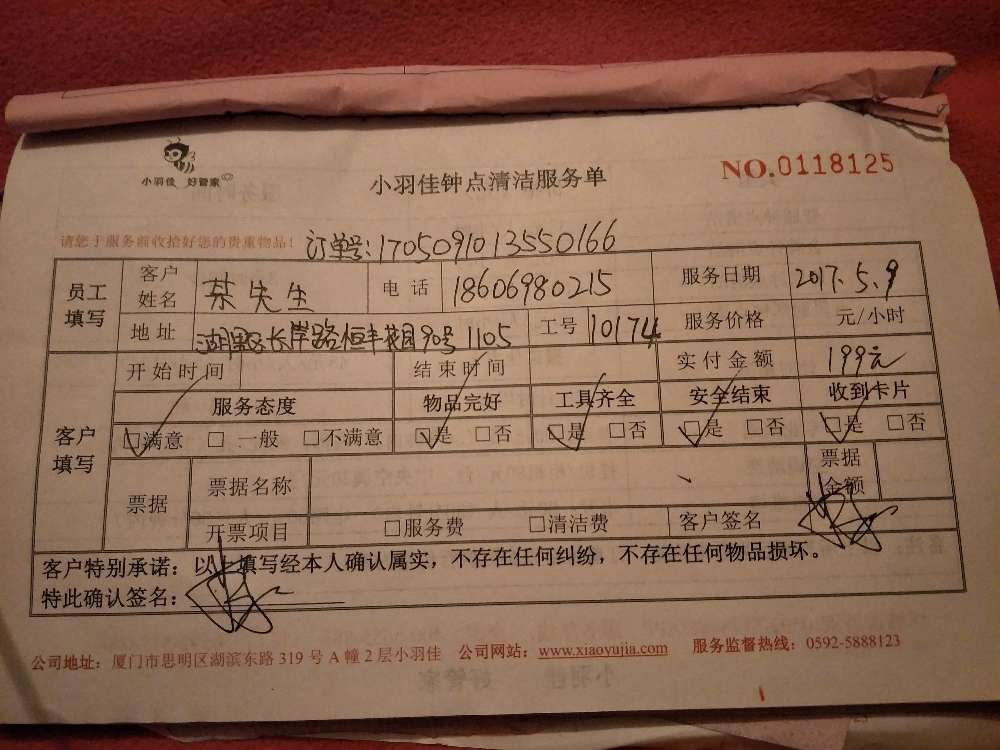 小羽佳 好管家
小羽佳钟点清洁服务单
NO.0118125
请您于服务前收拾好您的贵重物品！
订单号:1705091013550166
员工填写 客户姓名 先生 电话 18606980215 服务日期 2017.5.9
地址 湖里区长岸路恒丰花园90号1105 工号 10174 服务价格 元/小时
客户填写 开始时间 结束时间 实付金额 199元
服务态度 物品完好 工具齐全 安全结束 收到卡片
☑满意 □一般 □不满意 ☑是 □否 ☑是 □否 ☑是 □否 ☑是 □否
票据 票据名称 票据金额
开票项目 □服务费 □清洁费 客户签名
客户特别承诺：以上填写经本人确认属实，不存在任何纠纷，不存在任何物品损坏。
特此确认签名：
公司地址：厦门市思明区湖滨东路319号A幢2层小羽佳 公司网站：www.xiaoyujia.com 服务监督热线：0592-5888123